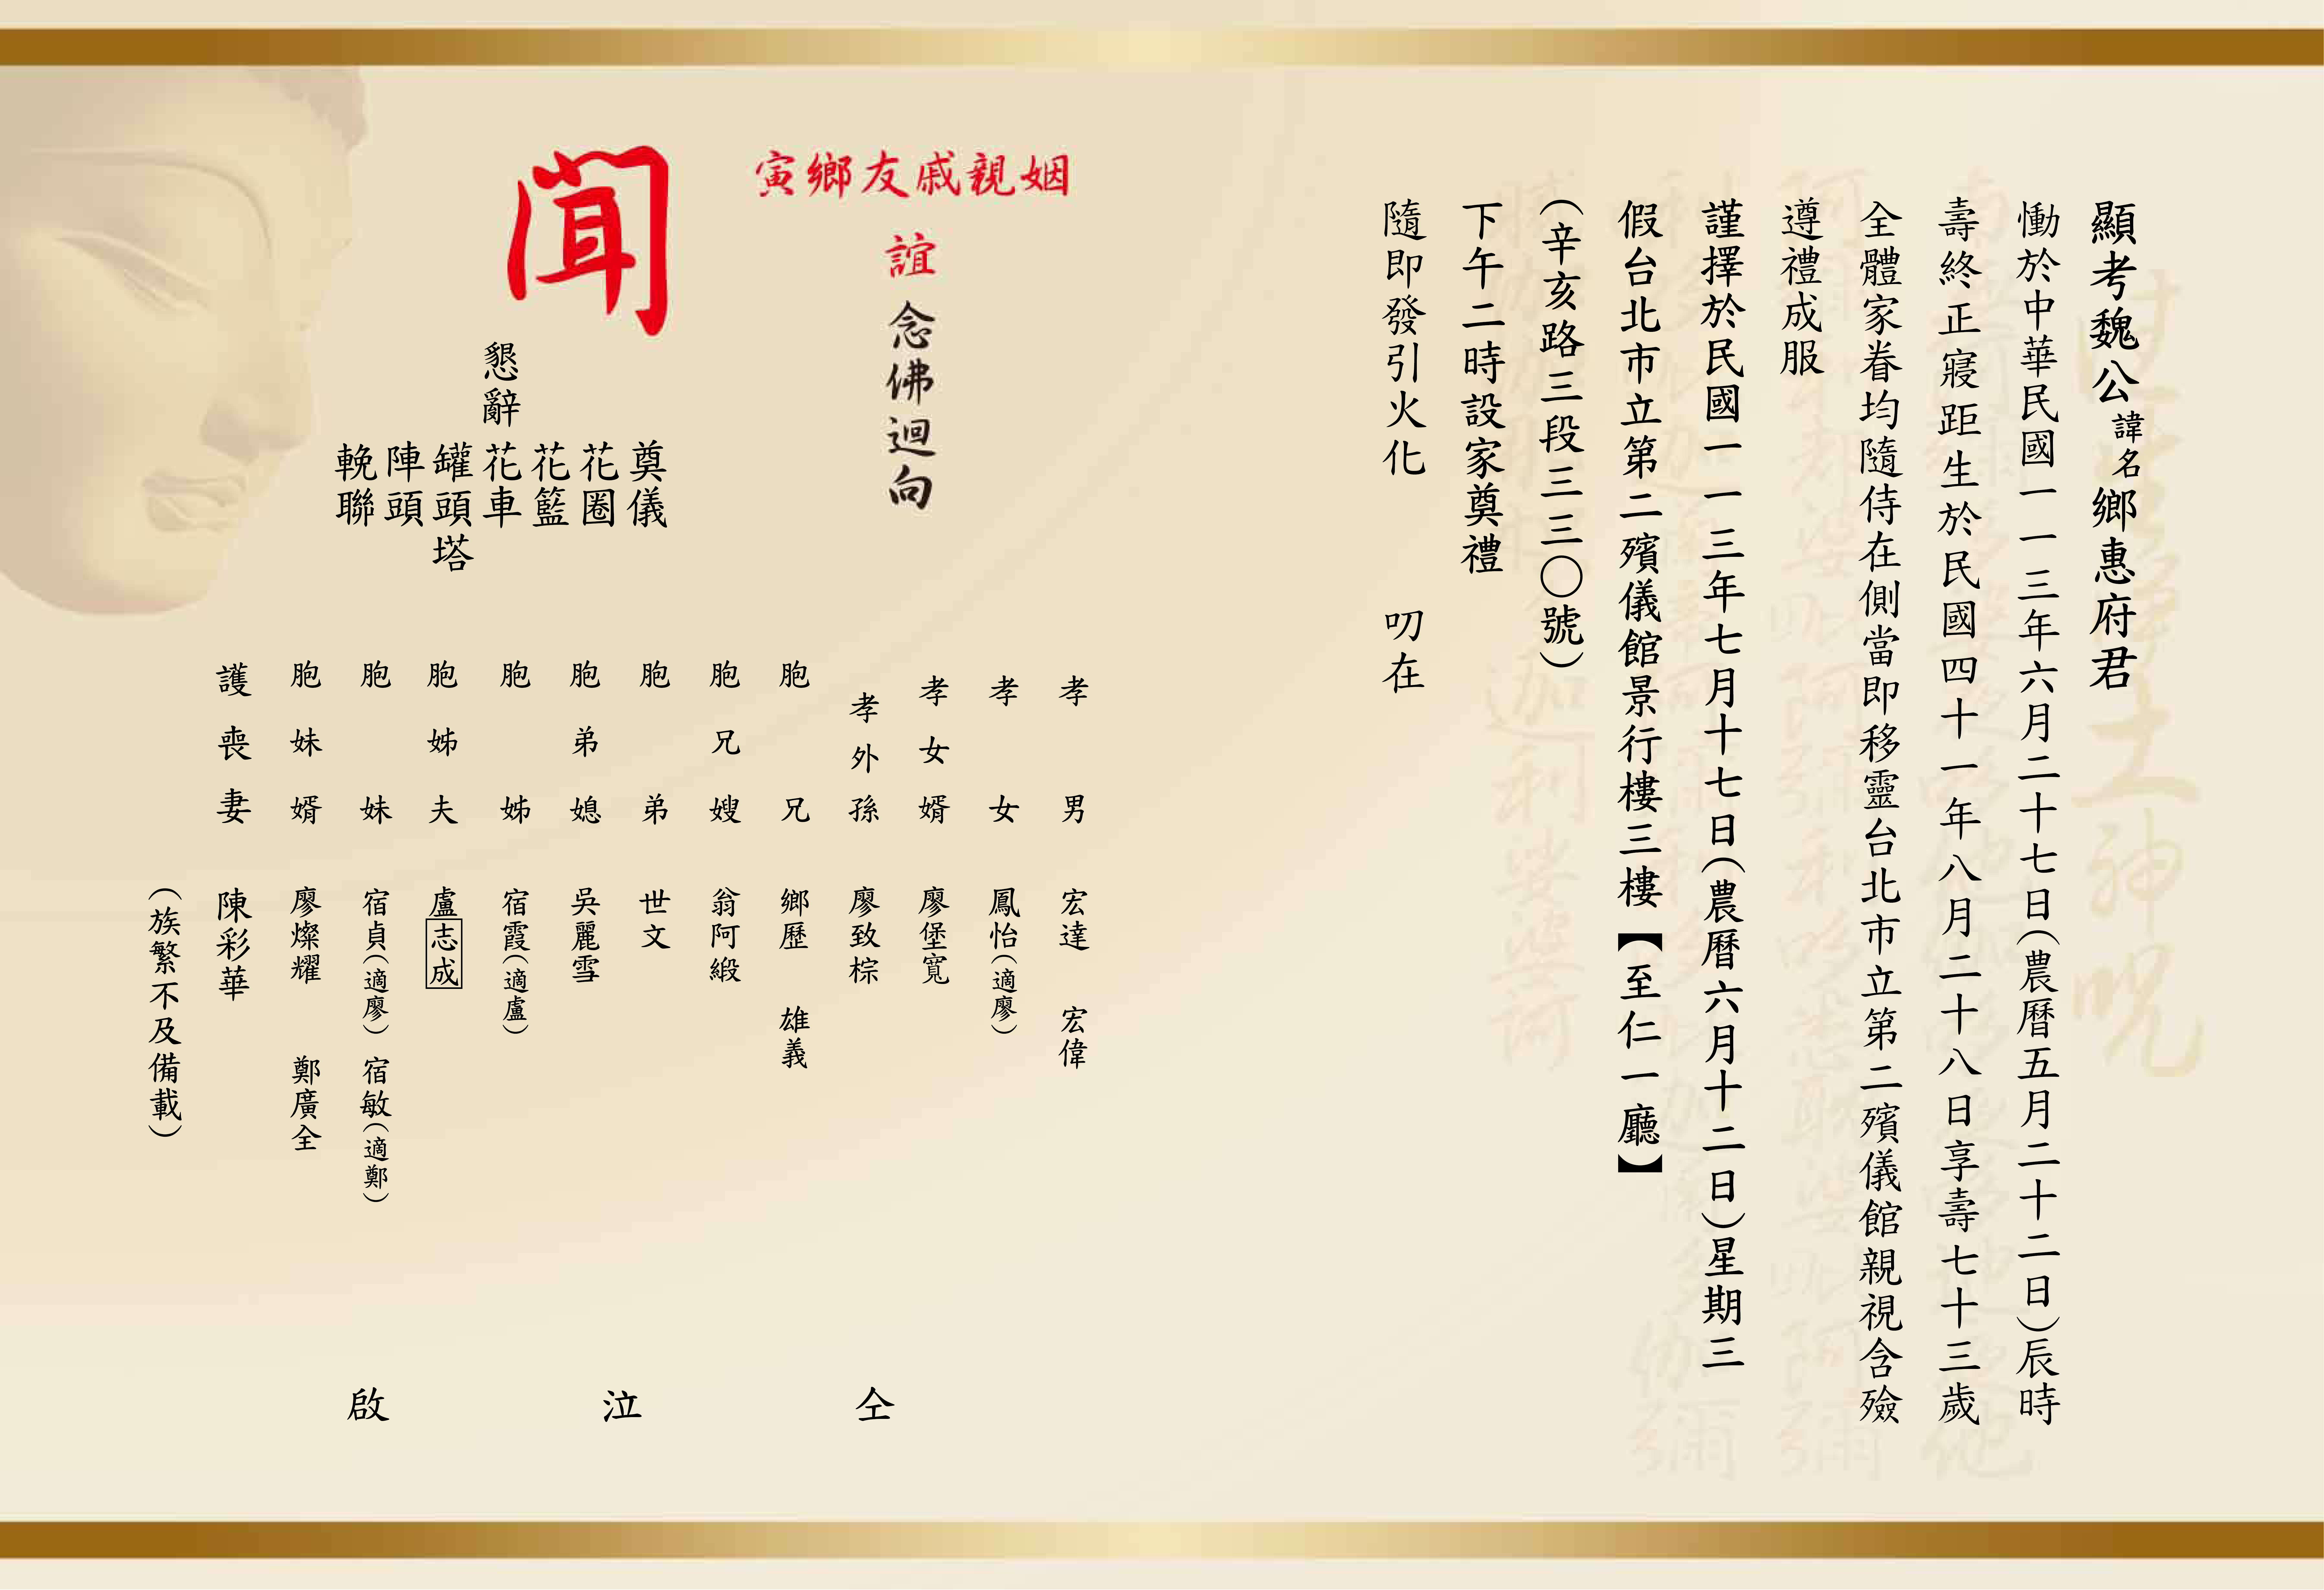 顯考魏公諱名鄉惠府君
慟於中華民國一一三年六月二十七日(農曆五月二十二日)辰時
壽終正寢距生於民國四十一年八月二十八日享壽七十三歲
全體家眷均隨侍在側當即移靈台北市立第二殯儀館親視含殮
遵禮成服
謹擇於民國一一三年七月十七日(農曆六月十二日)星期三
假台北市立第二殯儀館景行樓三樓【至仁一廳】
(辛亥路三段三三〇號)
下午二時設家奠禮
隨即發引火化 叨在
姻親戚友鄉寅
誼 念佛迴向
聞
懇辭
奠儀
花圈
花籃
花車
罐頭塔
陣頭
輓聯
孝男 宏達 宏偉
孝女 鳳怡(適廖)
孝女婿 廖堡寬
孝外孫 廖致棕
胞兄 鄉歷 雄義
胞兄嫂 翁阿緞
胞弟 世文
胞弟媳 吳麗雪
胞姊 宿霞(適盧)
胞姊夫 盧志成
胞妹 宿貞(適廖) 宿敏(適鄭)
胞妹婿 廖燦耀 鄭廣全
護喪妻 陳彩華
(族繁不及備載)
仝 泣 啟